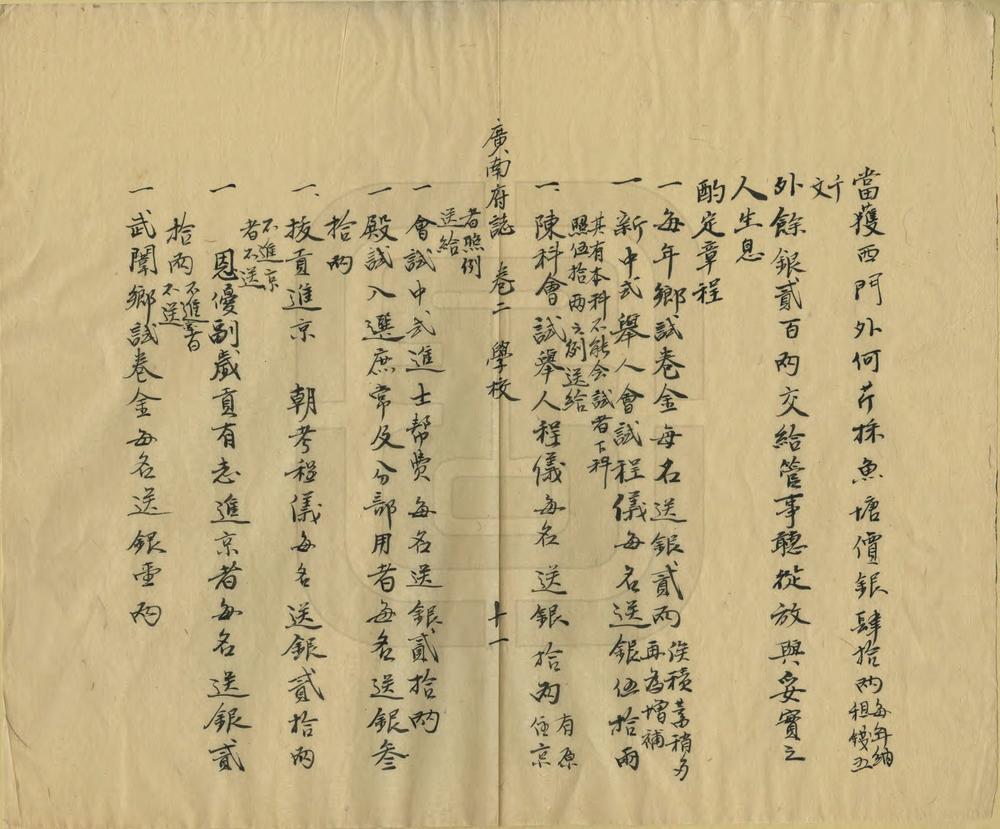 當獲西門外何芹採魚塘價銀肆拾兩每年納租錢五
千文
外餘銀貳百兩交給管事聽從放與妥實之
人生息
酌定章程
一每年鄉試卷金每名送銀貳兩俟積蓄稍多再為增補
一新中式舉人會試程儀每名送銀伍拾兩
其有本科不能会試者下科照伍拾兩之例送給
一陳科會試舉人程儀每名送銀拾兩有原任京
廣南府誌 卷二 學校 十一
者照例送給
一會試中式進士幫費每名送銀貳拾兩
一殿試入選庶常及分部用者每名送銀叁
拾兩
一拔貢進京 朝考程儀每名送銀貳拾兩
不進京者不送
一恩優副歲貢有志進京者每名送銀貳
拾兩不進者不送
一武闈鄉試卷金每名送銀壹兩